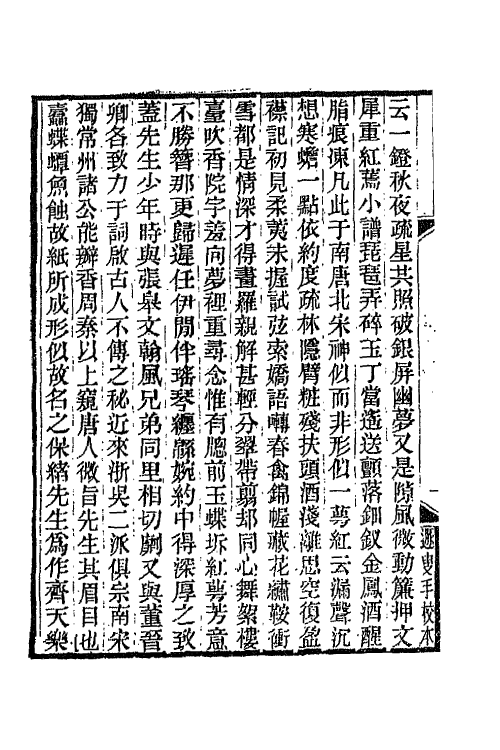 云一鐙秋夜疏星共照破銀屏幽夢又是隙風微動簾押文
犀重紅蔫小譜琵琶弄碎玉丁當遙送顫落鈿釵金鳳酒醒
脂痕凍凡此于南唐北宋神似而非形似一萼紅云漏聲沉
想寒蟾一點依約度疏林隱臂粧殘扶頭酒淺離思空復盈
襟記初見柔荑未握試弦索嬌語囀春禽錦幄藏花繡鞍衝
雪都是情深才得畫羅親解甚輕分翠帶翦却同心舞絮樓
臺吹香院宇羞向夢裡重尋念惟有牕前玉蝶坼紅萼芳意
不勝簪那更歸遲任伊閒伴瑤琴纏緜婉約中得深厚之致
蓋先生少年時與張皋文翰風兄弟同里相切劘又與董晉
卿各致力于詞啟古人不傳之秘近來浙吳二派俱宗南宋
獨常州諸公能瓣香周秦以上窺唐人微旨先生其眉目也
蠹蝶蟫魚蝕故紙所成形似故名之保緒先生爲作齊天樂
遯叟手校本